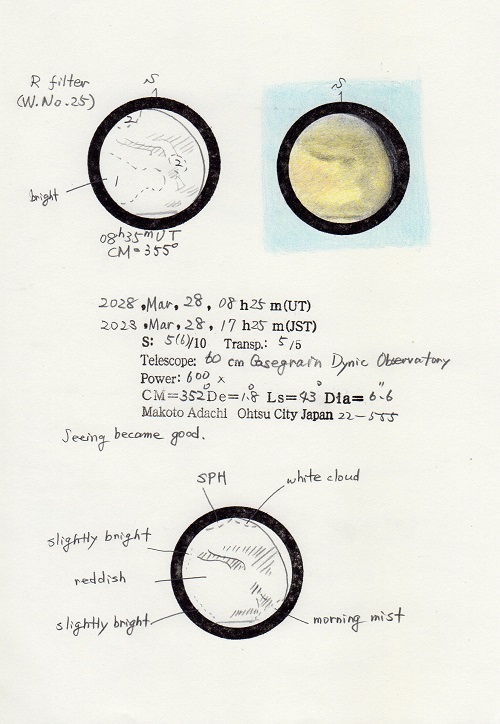 R filter
(W.No.25)
S
2
2
1
bright
08h35mUT
CM=355°
S
2023.Mar,28, 08h25m(UT)
2023.Mar,28, 17h25m(JST)
S: 5(6)/10 Transp.: 5/5
Telescope: 60 cm Casegrain Dynic Observatory
Power: 600 x
CM=352° De=1.8° Ls=43° Dia=6.6"
Makoto Adachi Ohtsu City Japan 22-555
Seeing became good.
SPH
white cloud
slightly bright
reddish
slightly bright
morning mist